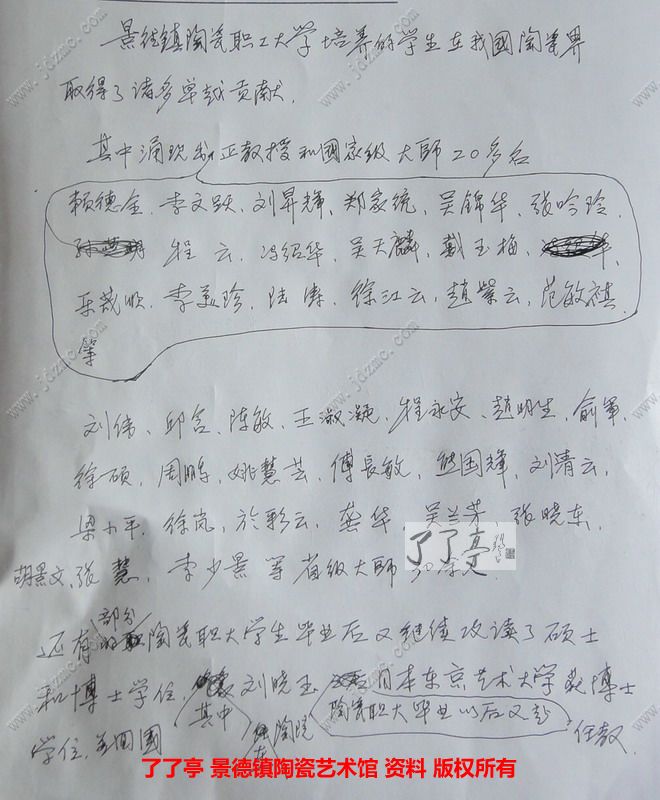 景德镇陶瓷职工大学培养的学生在我國陶瓷界
取得了诸多卓越贡献.
其中涌现出正教授和國家级大师20多名
賴德全、李文跃、刘昇辉、郑家统、吴锦华、张吟玲、
程云、冯绍华、吴天麟、戴玉梅、
李美珍、陆涛、徐江云、趙紫云、范敏祺
等
刘伟、邱含、陈敏、王淑凝、程永安、趙明生、俞军、
徐硕、周鹏、姚慧芸、傅長敏、熊国辉、刘清云、
梁小平、徐岚、於彩云、龚华、吴兰芳、张晓东、
胡景文、张慧、李少景等省级大师
了了亭
还有部分陶瓷职大学生毕业后又继续攻读了硕士
和博士学位,其中刘晓玉日本东京艺术大学获博士
陶瓷职大毕业以后又赴
学位,回國在陶院任教.
了了亭 景德镇陶瓷艺术馆 资料 版权所有
www.jdzmc.com